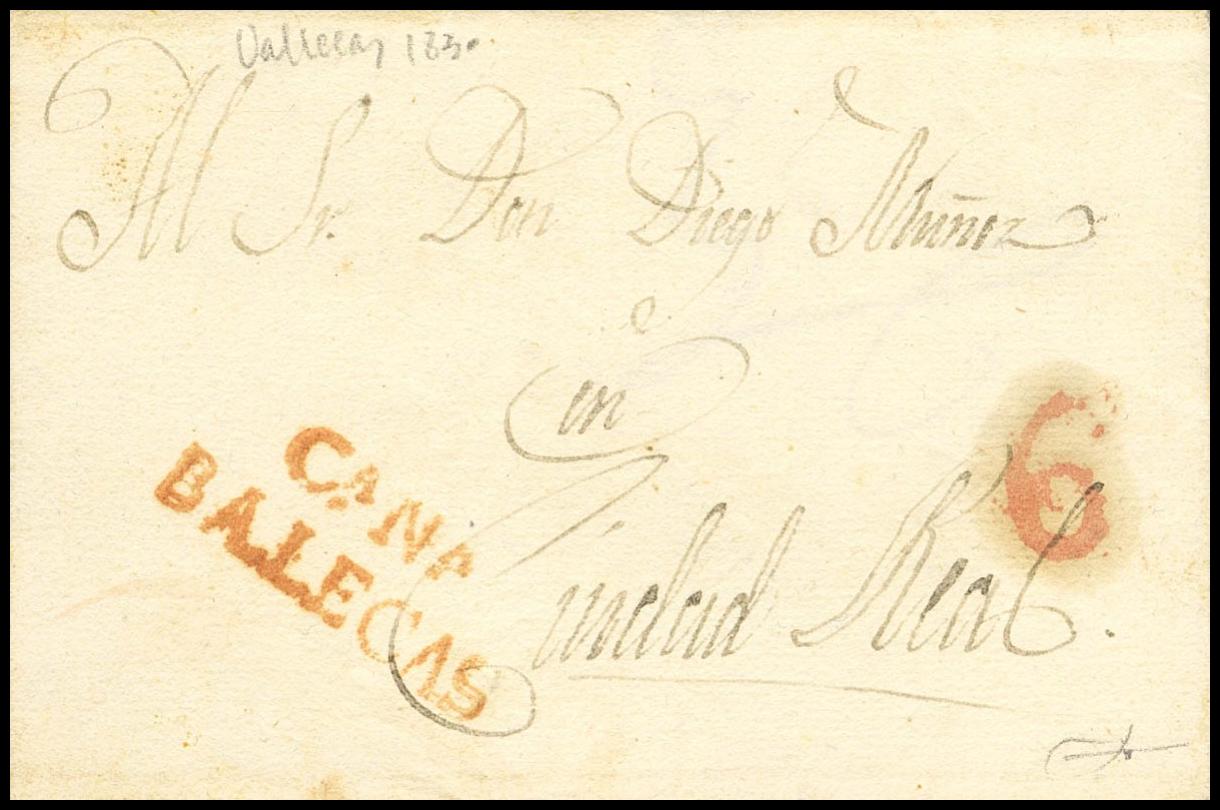 Vallecas 1830
Al Sr. Don Diego Muñoz
en
Ciudad Real.
6
CaNa
BALLECAS